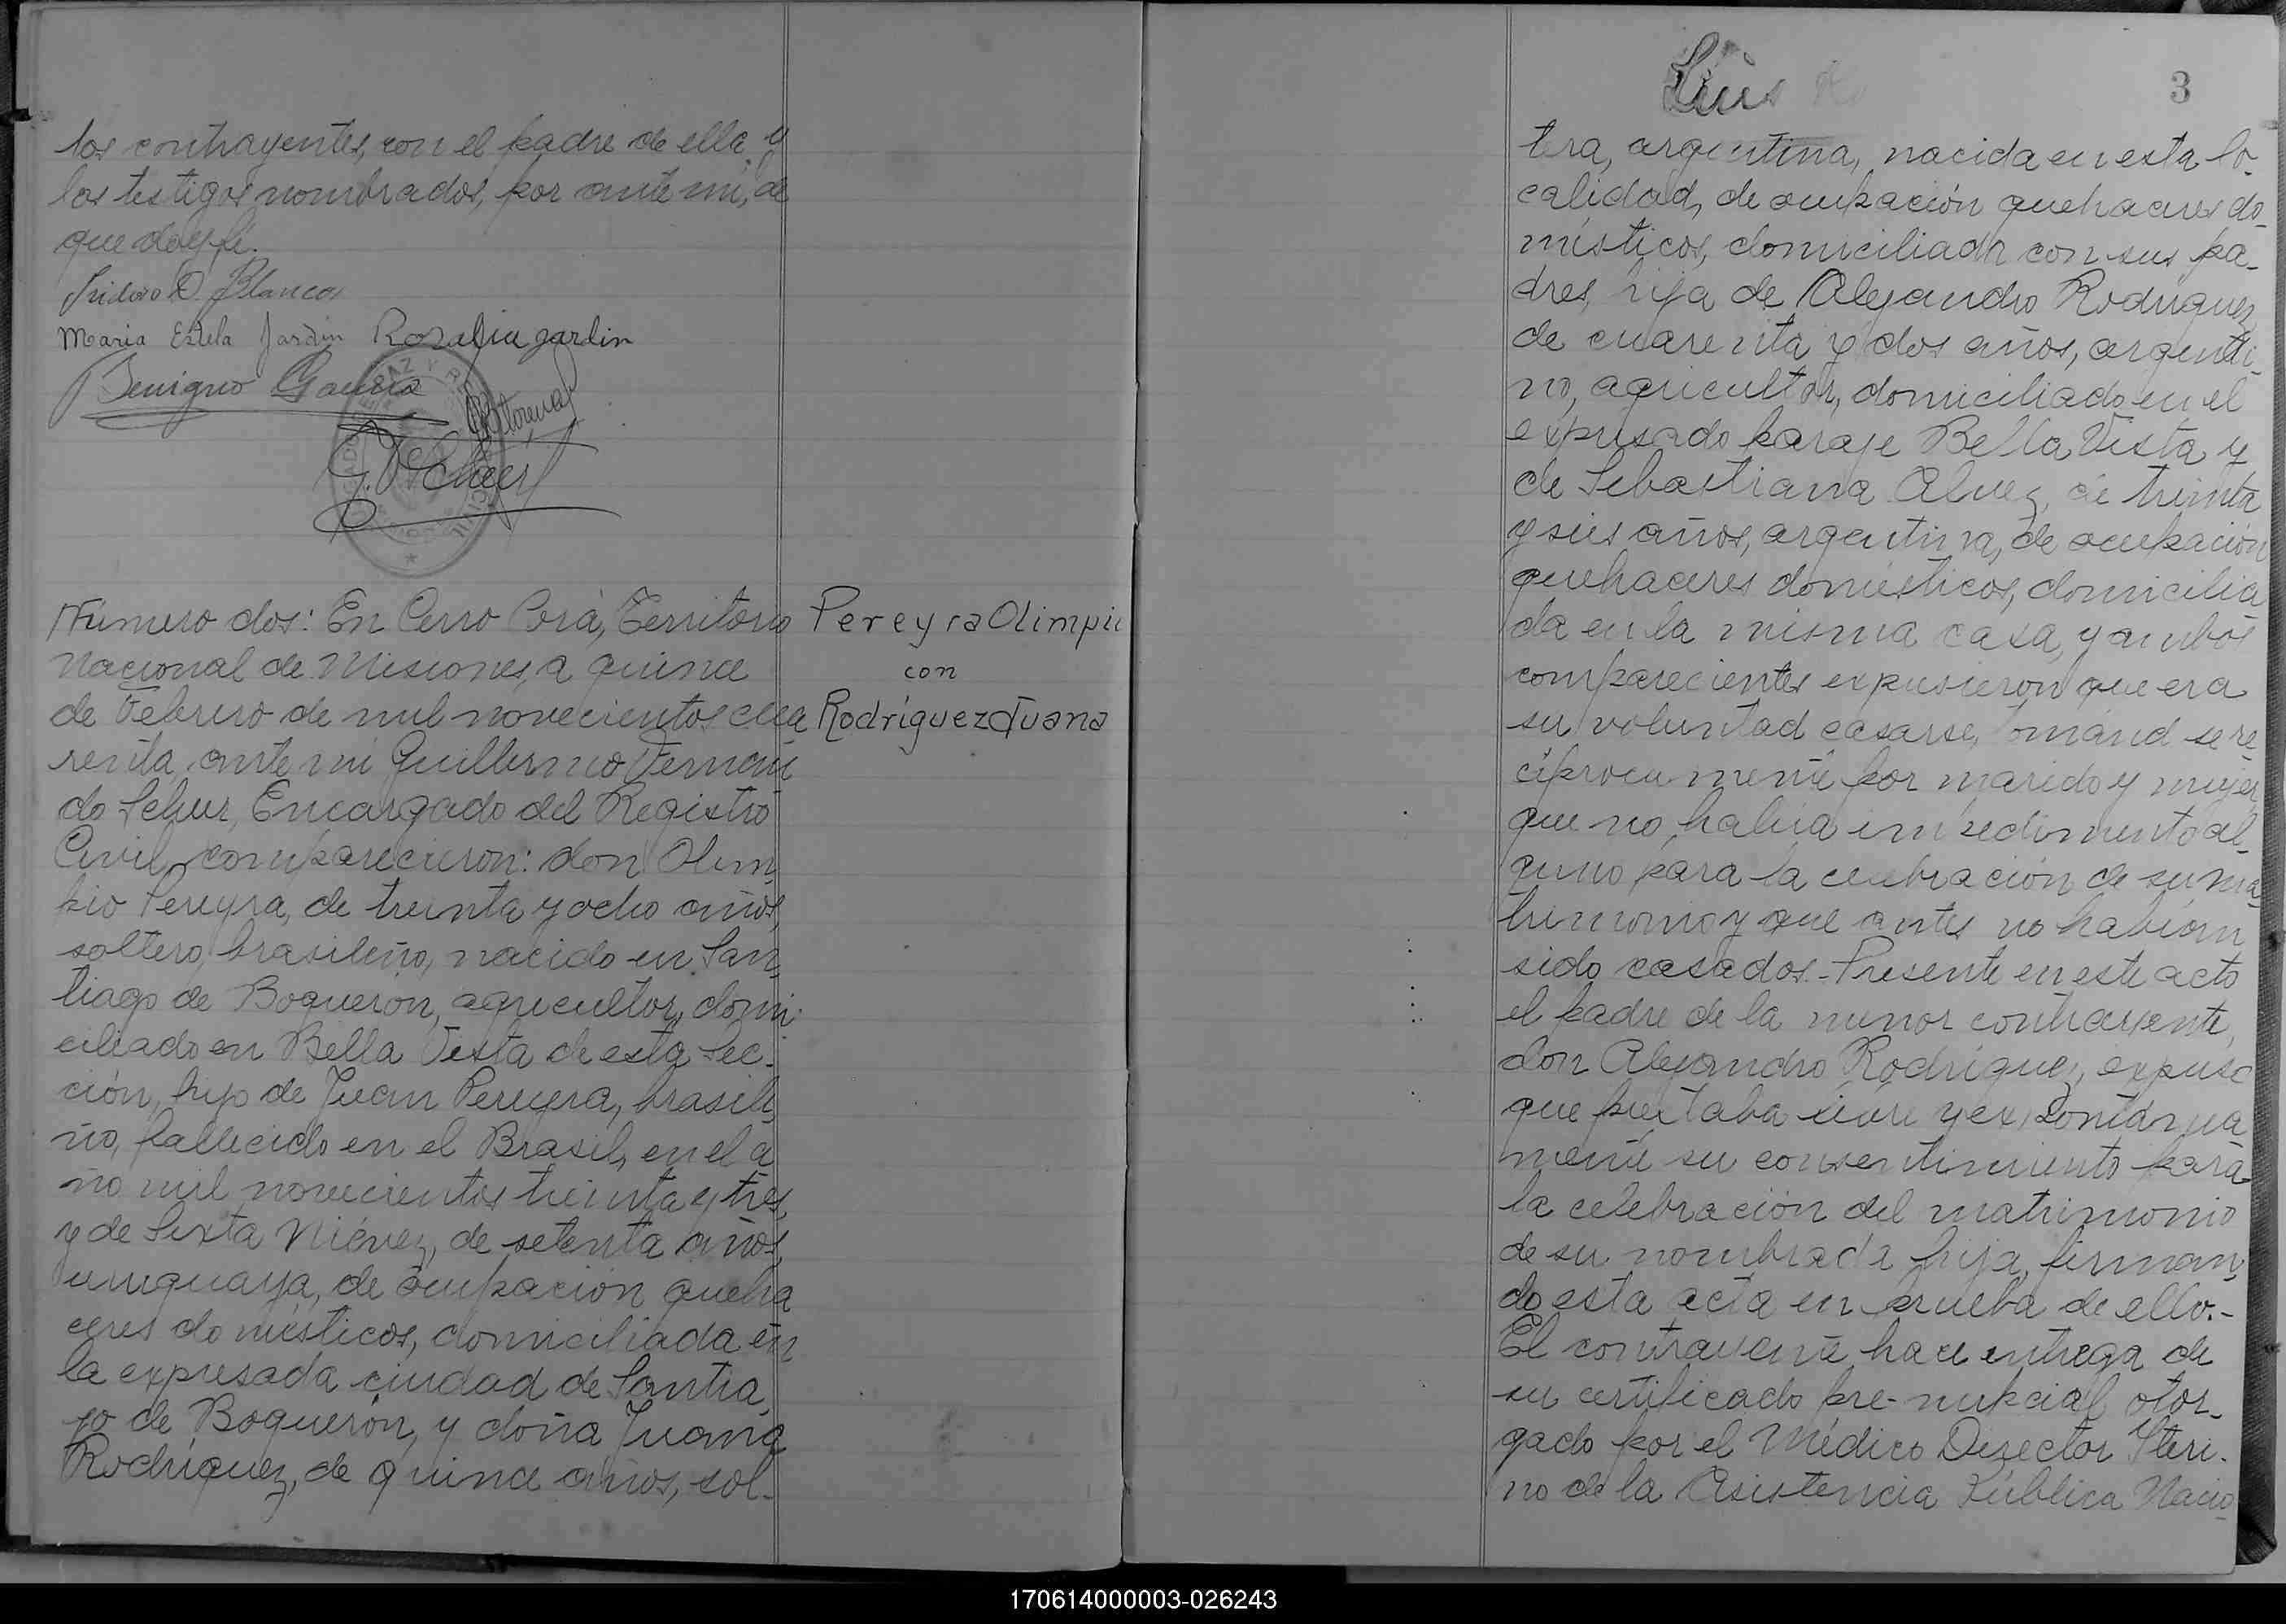 los contrayentes, con el padre de ella y
los testigos nombrados, por ante mi, de
que doy fé.
Isidoro O. Blanco
Maria Estela Jardin Rosalia Jardin
Benigno
Número dos: En Cerro Corá, Territorio
Nacional de Misiones, a quince
de Febrero de mil novecientos cua
renta, ante mi Guillermo Fernan
do Scheer, Encargado del Registro
Civil, comparecieron: don Olim
pio Pereyra, de treinta y ocho años,
soltero, brasileño, nacido en San
tiago de Boquerón, agricultor, domi-
ciliado en Bella Vista de esta Sec-
ción, hijo de Juan Pereyra, brasile
ño, fallecido en el Brasil, en el a
ño mil novecientos treinta y tres,
y de Sexta Niévez, de setenta años,
uruguaya, de ocupación queha
ceres domésticos, domiciliada en
la expresada ciudad de Santia
go de Boquerón, y doña Juana
Rodríguez, de quince años, sol-
Pereyra Olimpio
con
Rodríguez Juana
3
tera, argentina, nacida en esta lo-
calidad, de ocupación quehaceres do-
mésticos, domiciliada con sus pa-
dres, hija de Alejandro Rodríguez,
de cuarenta y dos años, argenti-
no, agricultor, domiciliado en el
expresado paraje Bella Vista y
de Sebastiana Alvez, de treinta
y seis años, argentina, de ocupación
quehaceres domésticos, domicilia
da en la misma casa, y ambos
comparecientes expusieron que era
su voluntad casarse, tomándose re
ciprocamente por marido y mujer,
que no había impedimento al-
guno para la celebración de su ma
trimonio y que antes no habían
sido casados.- Presente en este acto
el padre de la menor contrayente,
don Alejandro Rodríguez, expuso
que prestaba libre y expontánea
mente su consentimiento para
la celebración del matrimonio
de su nombrada hija, firman
do esta acta en prueba de ello.-
El contrayente hace entrega de
su certificado pre-nupcial otor-
gado por el Médico Director Iteri-
no de la Asistencia Pública Nacio
170614000003-026243